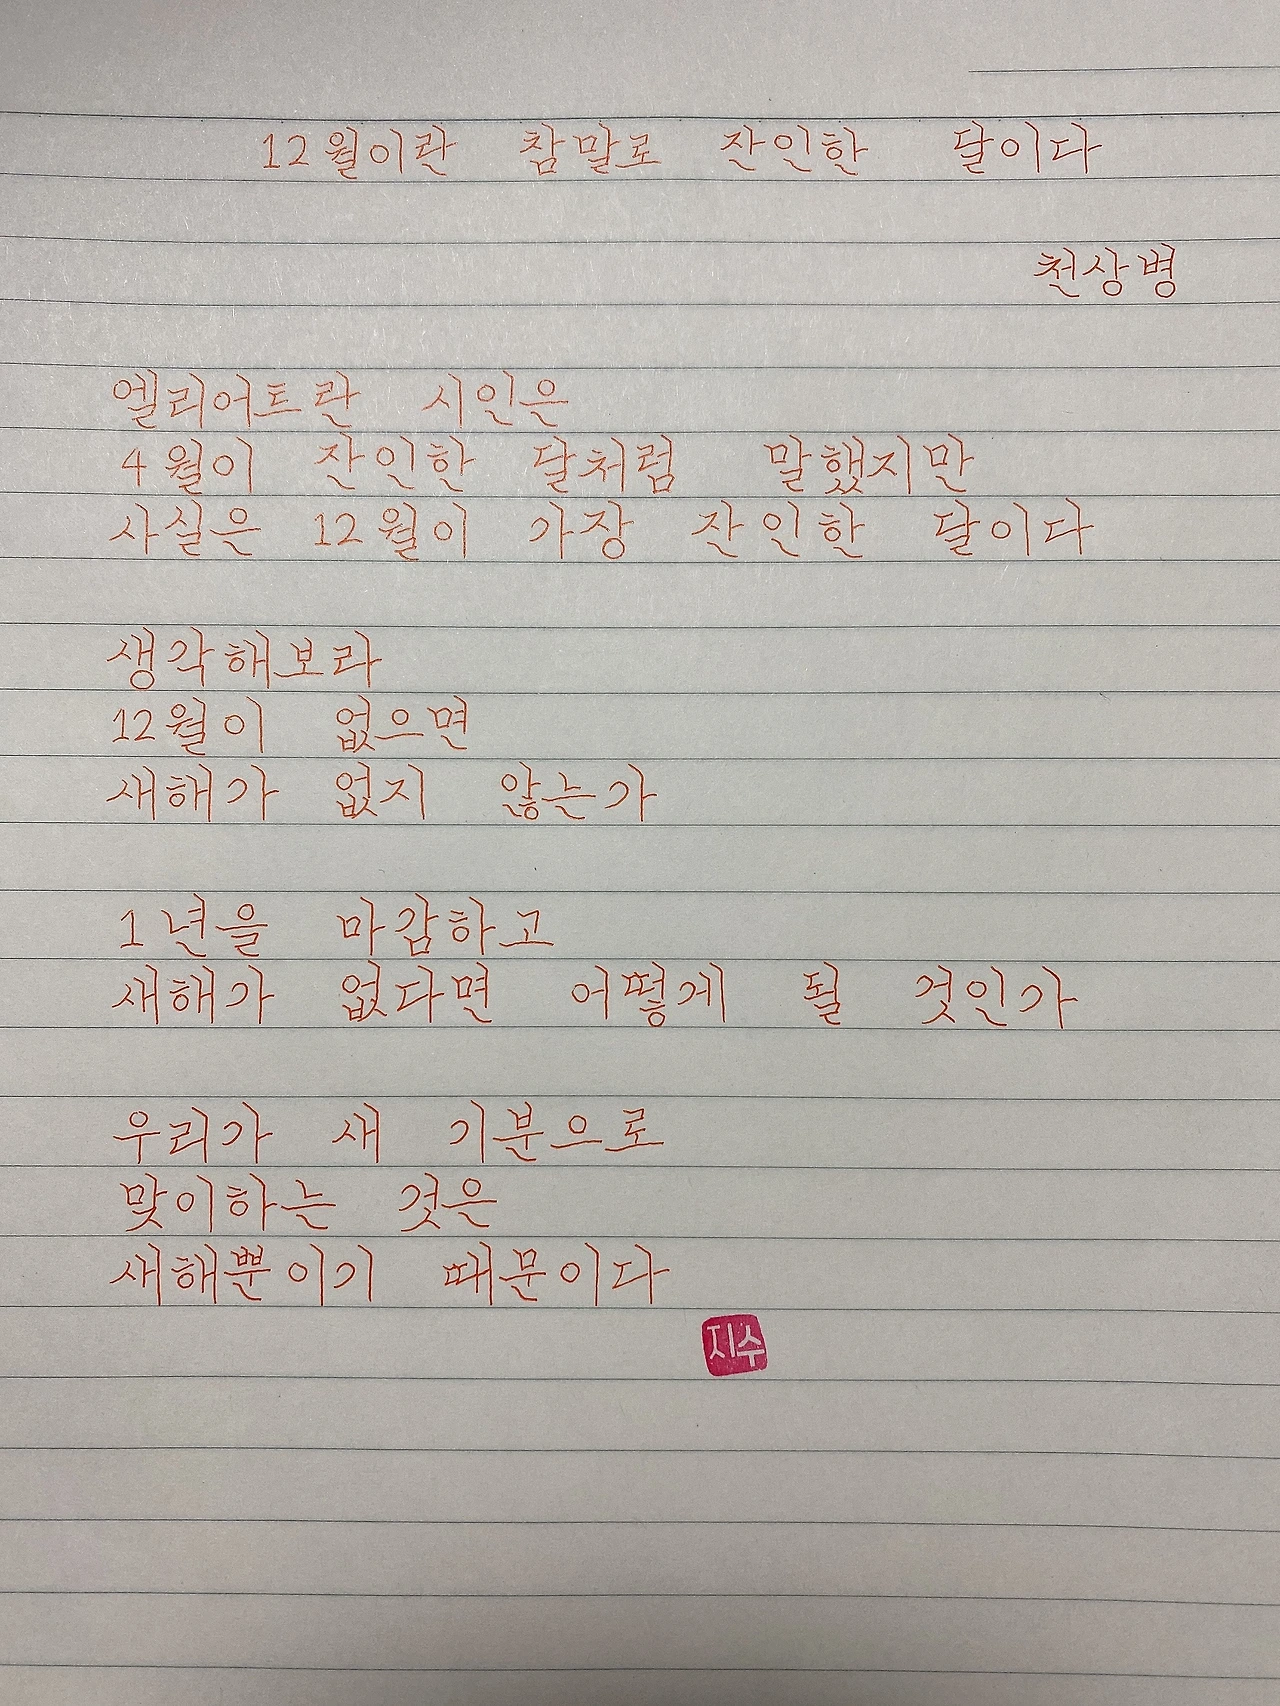 12월이란 참말로 잔인한 달이다
천상병
엘리어트란 시인은
4월이 잔인한 달처럼 말했지만
사실은 12월이 가장 잔인한 달이다
생각해보라
12월이 없으면
새해가 없지 않는가
1년을 마감하고
새해가 없다면 어떻게 될 것인가
우리가 새 기분으로
맞이하는 것은
새해뿐이기 때문이다
지수